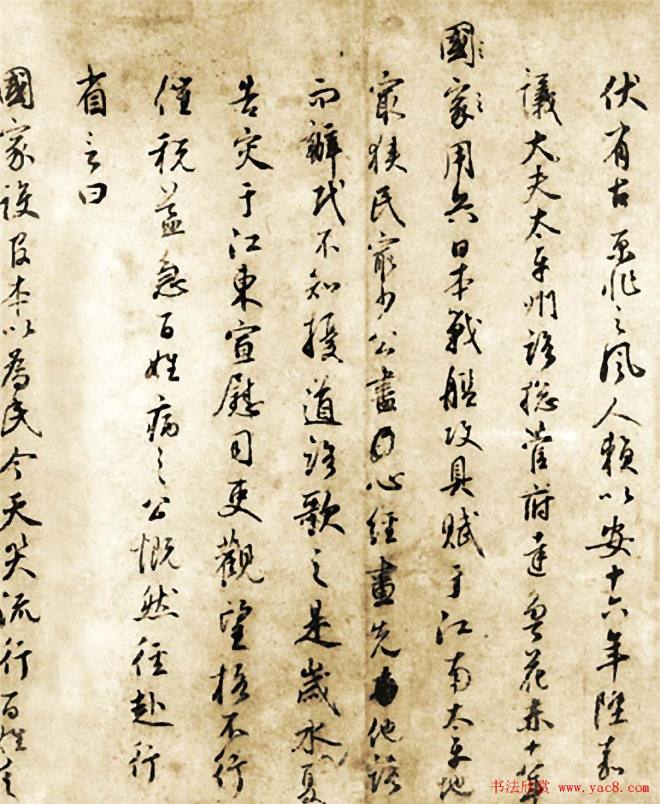 有古之風人賴以安十六年陞嘉
議大夫太平州路總管府達魯花赤十年
國家用兵日本戰艦攻具賦于江南太平地
狹民少公盡心經畫先他路
而辦民不知擾道路歌之是歲水夏
告灾于江東宣慰司吏觀望格不行
催税益急百姓病之公慨然徑赴行
省言曰
國家設官本以為民今天災流行百姓
书法欣赏 www.yac8.com